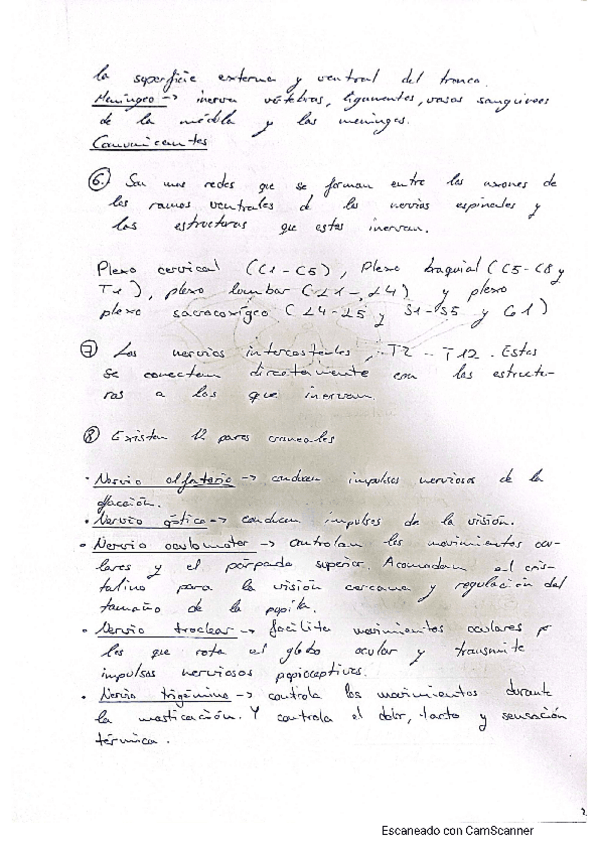 la superficie externa y ventral del tronco.
Meningeo -> inerva vértebras, ligamentos, vasos sanguíneos
de la médula y las meninges.
Comunicantes
6. Son unas redes que se forman entre los axones de
los ramos ventrales de los nervios espinales y
las estructuras que estos inervan.
Plexo cervical (C1-C5), Plexo braquial (C5-C8 y
T1), plexo lumbar (L1-L4) y plexo
plexo sacrocoxígeo (L4-L5 y S1-S5 y C1)
7 Los nervios intercostales, T2 - T12. Estos
se conectan directamente con las estructu-
ras a las que inervan.
8 Existen 12 pares craneales
· Nervio olfatorio -> conducen impulsos nerviosos de la
olfacción.
· Nervio óptico -> conducen impulsos de la visión.
· Nervio oculomotor -> controlan los movimientos ocu-
lares y el párpado superior. Acomodan el cris-
talino para la visión cercana y regulación del
tamaño de la pupila.
· Nervio troclear -> facilita movimientos oculares p
los que rota el globo ocular y transmite
impulsos nerviosos propioceptivos.
· Nervio trigémino -> controla los movimientos durante
la masticación. Y controla el dolor, tacto y sensación
térmica.
2
Escaneado con CamScanner